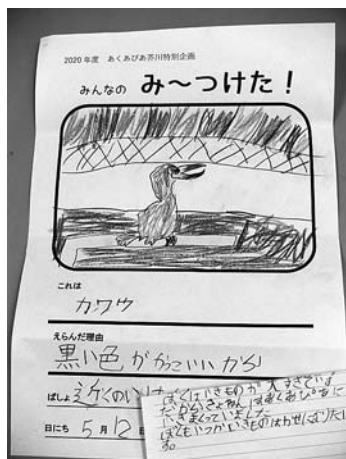 2020年度 あくあぴあ芥川特別企画
みんなの み〜つけた！
これは
カワウ
えらんだ理由
黒い色がかっこいいから
ばしょ 近くの
日にち 5月12
ぼくはいきものが大すきでいま
だからきょねんはあくあぴあに
いきまくっていました
ぼくもいつかいきもの